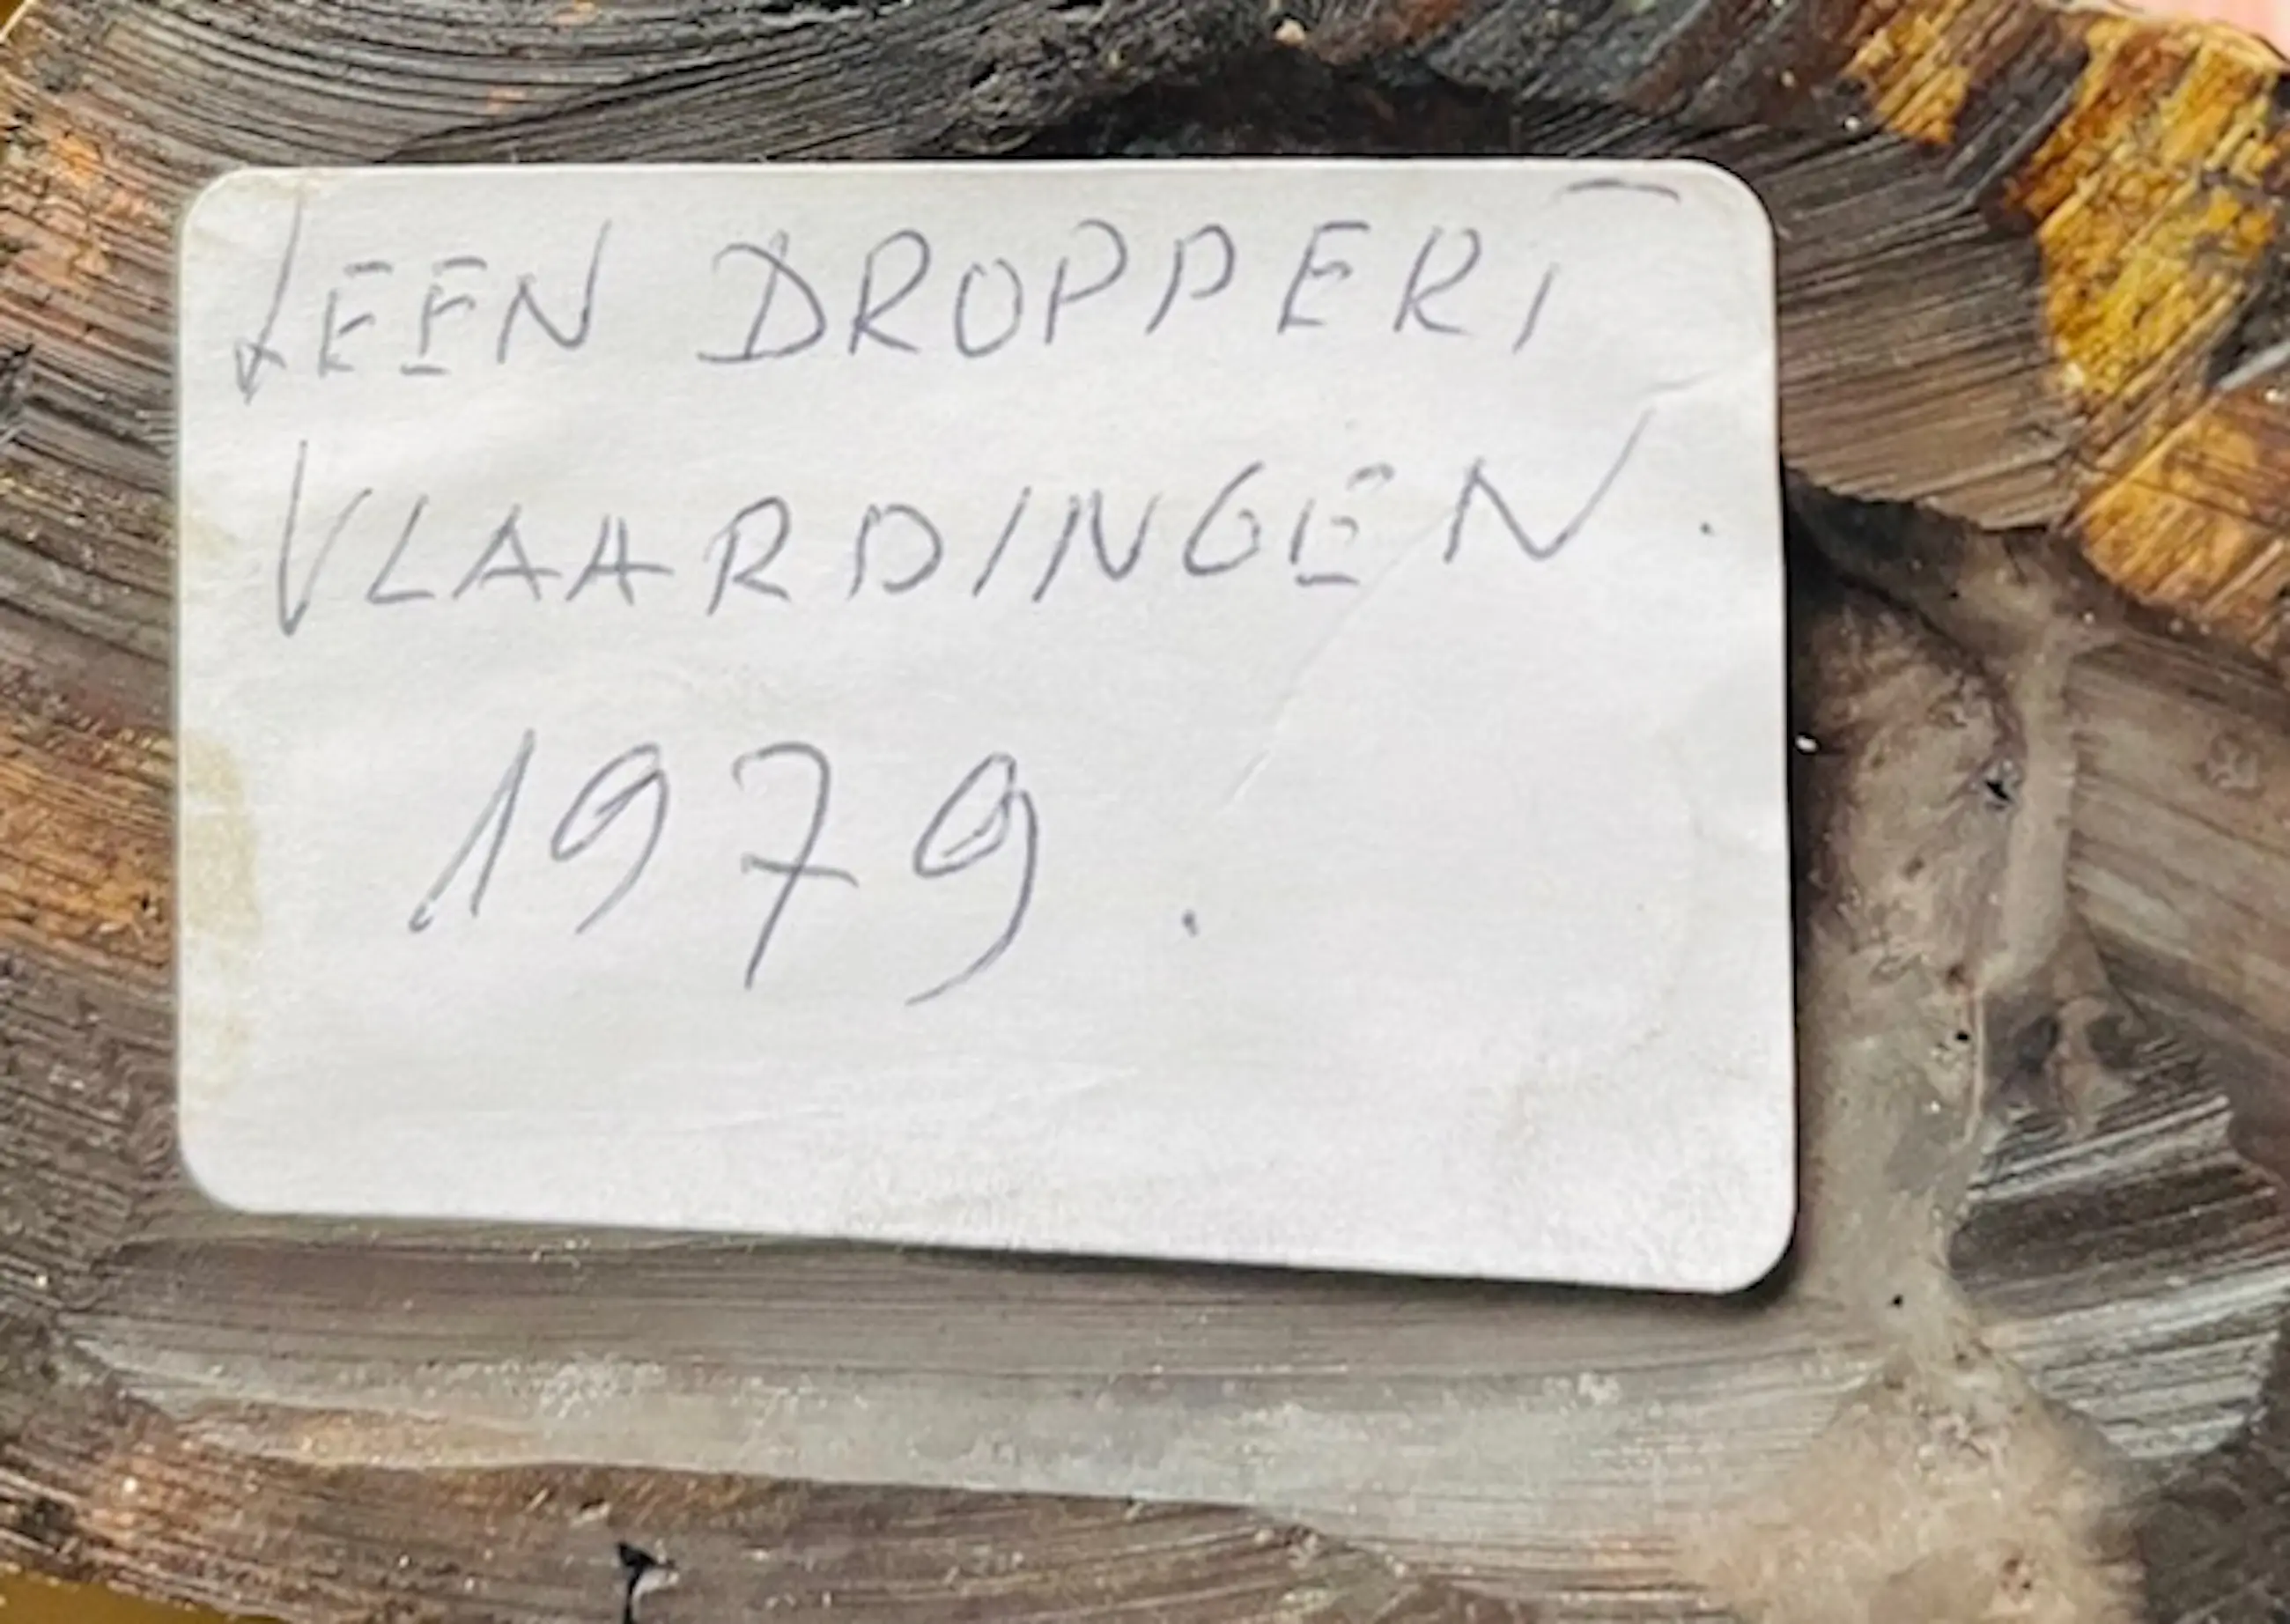 LEEN DROPPERT
VLAARDINGEN.
1979.